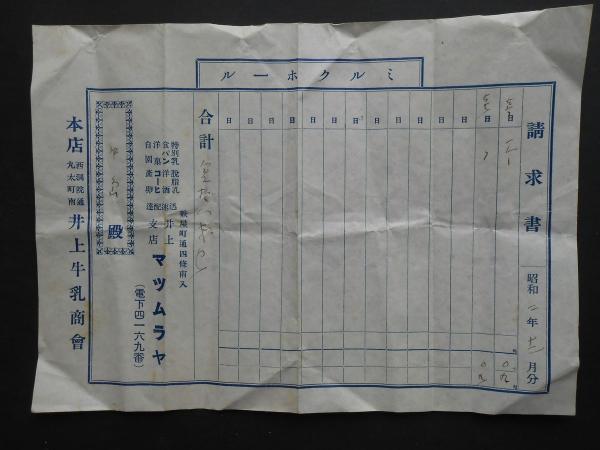 ミルクホール
請求書
昭和二年十二月分
日
日
日
日
日
日
日
日
日
日
日
日
合計
特別乳 脱脂乳
食パン 洋酒
洋菓 コーヒ
自園産卵
迅速配達
殿
麩屋町通四條南入
井上支店 マツムラヤ
(電下四一六九番)
本店 西洞院通丸太町南 井上牛乳商會